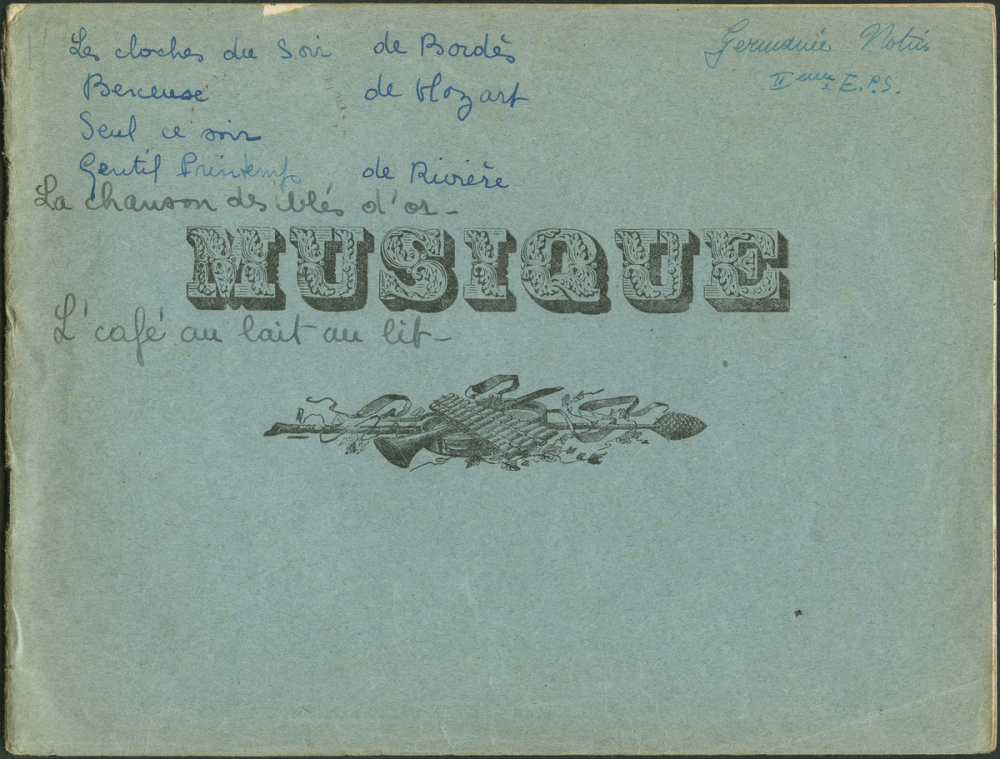 Les cloches du Soir de Bordès
Berceuse de Mozart
Seul ce soir
Gentil Printemps de Rivière
La chanson des blés d'or -
Germanie
II eme E.P.S.
MUSIQUE
L'café au lait au lit -